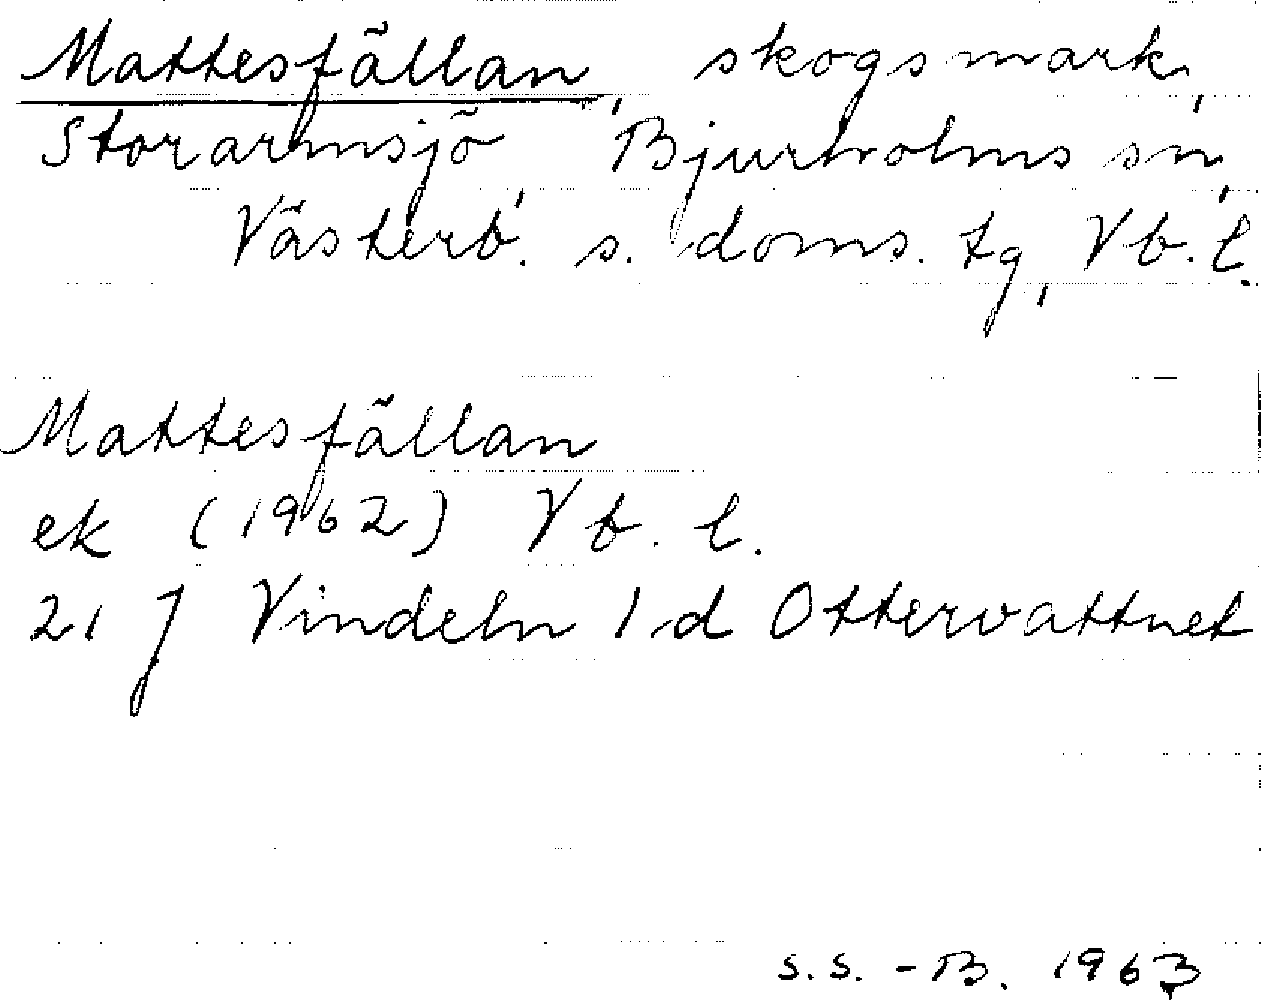 Mattesfällan, skogsmark,
Storarmsjö, Bjurholms sn,
Västerb. s. doms. tg, Vb. l.
Mattesfällan
ek (1962) Vb. l.
21 J Vindeln 1 d Ottervattnet
S.S. - B. 1963